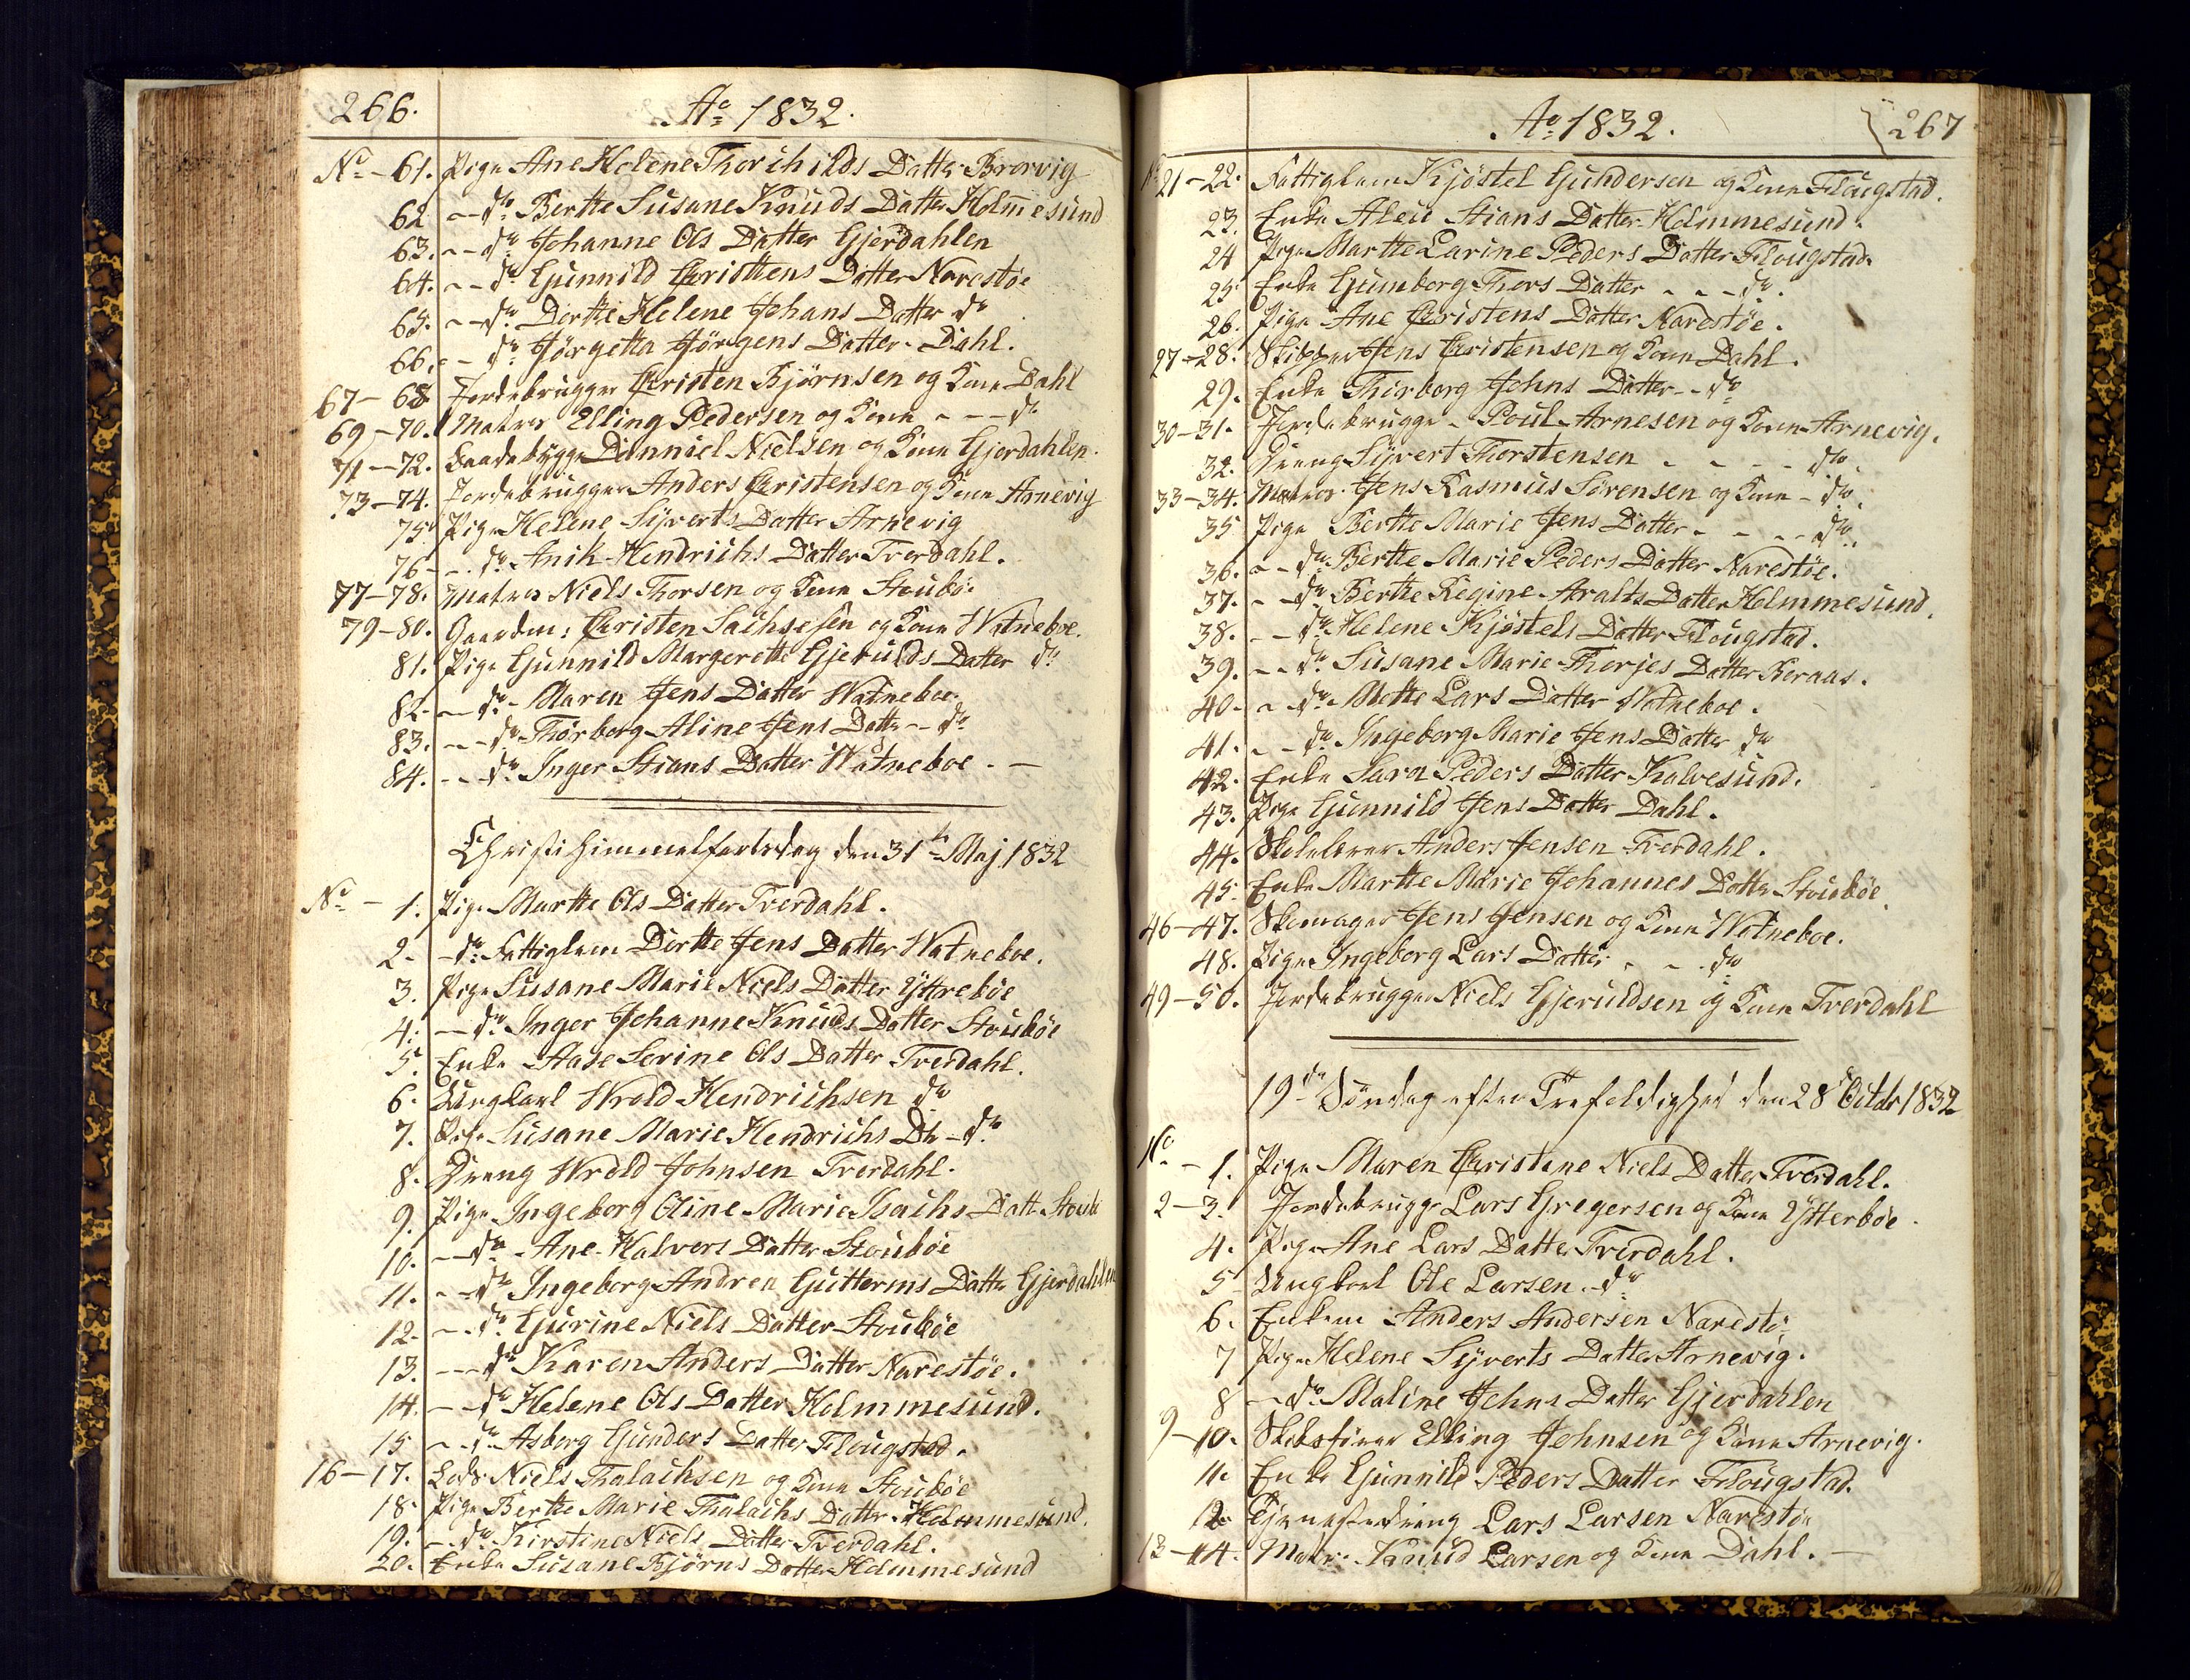 266.
Ao 1832.
No - 61. Pige Ane Helene Thorchilds Datter Brorvig
62 -- do Berthe Susane Knuds Datter Holmesund
63. -- do Johanne Ols Datter Gjerdahlen
64. -- do Gunnild Christens Datter Narestøe
65. -- do Dorthe Helene Johans Datter do
66. - do Jörgetta Jörgens Datter Dahl.
67-68 Jordebrugger Christen Bjørnsen og Kone Dahl
69-70. Matros Elling Pedersen og Kone --- do
71-72. Baadebygge Danniel Nielsen og Kone Gjerdahlen.
73-74. Jordebrugger Anders Christensen og Kone Arnevig
75 Pige Helene Syverts Datter Arnevig
76 - -- do Anik Hendrichs Datter Tverdahl.
77-78. Matros Niels Thorsen og Kone Stoubø.
79-80. Gaardm: Christen Sachsesen og Kone Watneboe.
81. Pige Gunnild Margerethe Gjerulds Datter do
82- -- do - Maren Jens Datter Watneboe.
83. -- do Thorborg Aline Jens Datter -- do
84. -- do Inger Stians Datter Watneboe. -
Christi Himmelfartsdag den 31te Maj 1832
No - 1. Pige Marthe Ols Datter Tverdahl.
2. - do Fattiglem Dorthe Jens Datter Watneboe.
3. Pige Susane Marie Niels Datter Yttrebøe
4. -- do Inger Johanne Knuds Datter Stoubøe
5. Enke Aase Serine Ols Datter Tverdahl.
6. Ungkarl Wrold Hendrichsen do
7. Pige Susane Marie Hendrichs Dtr - do
8. Dreng Wrold Johnsen Tverdahl.
9. Pige Ingeborg Oline Marie Isachs Datt. Stoubø
10. -- do - Ane Halvors Datter Stoubøe
11. -- do Ingeborg Andrea Gutterms Datter Gjerdahlen
12. -- do Gurine Niels Datter Stoubøe
13. --- do Karen Anders Datter Narestøe.
14. -- do Helene Ols Datter Holmmesund.
15 -- do Asborg Gunders Datter Flougstad.
16-17. Lods Niels Thalachsen og Kone Stoubøe
18 Pige Berthe Marie Thalachs Datter Holmmesund.
19. -- do Kirstine Niels Datter Tverdahl.
20. Enke Susane Bjørns Datter Holmmesund
Ao 1832.
267
No 21-22. Fattiglem Kjøstel Gundersen og Kone Flougstad.
23. Enke Aleu Stians Datter Holmmesund.
24 Pige Marthe Larine Peders Datter Flougstad.
25 Enke Gunborg Thors Datter - - - do.
26. Pige Ane Christens Datter Narestøe.
27-28. Skipper Jens Christensen og Kone Dahl.
29. Enke Thorborg Johns Datter -- do
30-31. Jordebrugge - Poul Arnesen og Kone Arnevig.
32. Dreng Syvert Thorstensen - - - - do.
33-34. Matros Jens Rasmus Sørensen og Kone - do.
35 Pige Berthe Marie Jens Datter - - -- do.
36. -- do Berthe Marie Peders Datter Narestøe.
37. -- do Berthe Regine Aralts Datter Holmmesund.
38. -- do Helene Kjøstels Datter Flougstad.
39. -- do Susane Marie Therjes Datter Beraas.
40. - do Mette Lars Datter Watneboe.
41. -- do Ingeborg Marie Jens Datter do
42. Enke Sara Peders Datter Kalvesund.
43. Pige Gunnild Jens Datter Dahl.
44. Skolelerer Anders Jensen Tverdahl.
45. Enke Marthe Marie Johannes Datter Stoubøe.
46-47. Skomager Jens Jensen og Kone Watneboe.
48. Pige Ingeborg Lars Datter - - - do
49-50. Jordebrugger Niels Gjeruldsen og Kone Tverdahl
19de Søndag efter Trefoldighed den 28de Octbr 1832
No - 1. Pige Maren Christene Niels Datter Tverdahl.
2-3. Jordebrugge Lars Gregersen og Kone Ytterbøe.
4. Pige Ane Lars Datter Tverdahl.
5 Ungkarl Ole Larsen - do
6. Enkem Anders Andersen Narestø
7 Pige Helene Syverts Datter Arnevig.
8 - do Maline Johns Datter Gjerdahlen
9-10. Skibsfører Elling Johnsen og Kone Arnevig.
11. Enke Gunnild Peders Datter Flougstad.
12. Tjenestedreng Lars Larsen Narestø
13-14. Matr. Knud Larsen og Kone Dahl. -